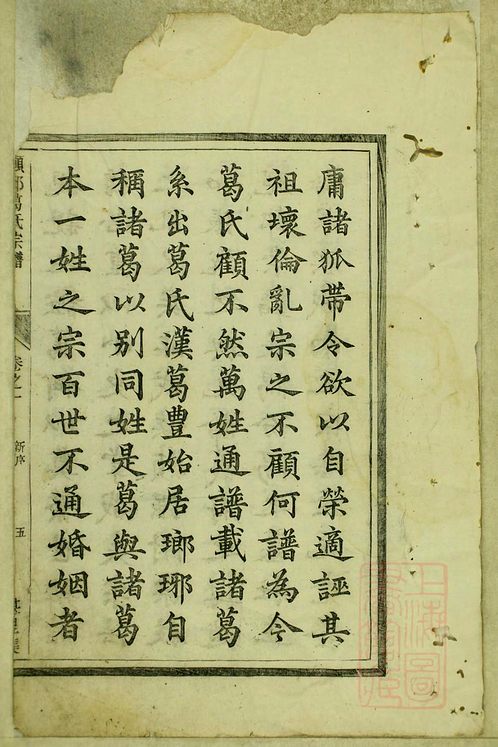 庸諸狐帶令欲以自榮適誣其
祖壞倫亂宗之不顧何譜為今
葛氏顧不然萬姓通譜載諸葛
系出葛氏漢葛豐始居瑯琊自
稱諸葛以別同姓是葛與諸葛
本一姓之宗百世不通婚姻者
葛氏宗譜
卷之一
新序
五
上海圖